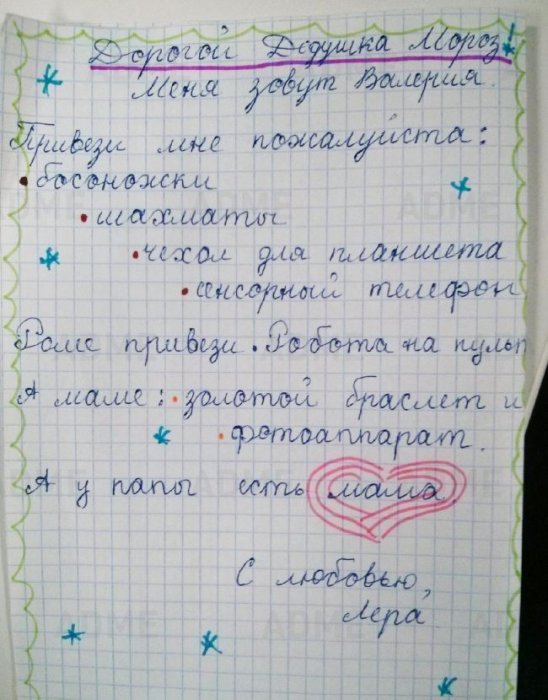 Дорогой Дедушка Мороз!
Меня зовут Валерия.
Привези мне пожалуйста:
• босоножки
• шахматы
• чехол для планшета
• сенсорный телефон
Роме привези • Робота на пульт
А маме: • золотой браслет и
• фотоаппарат.
А у папы есть мама.
С любовью,
Лера